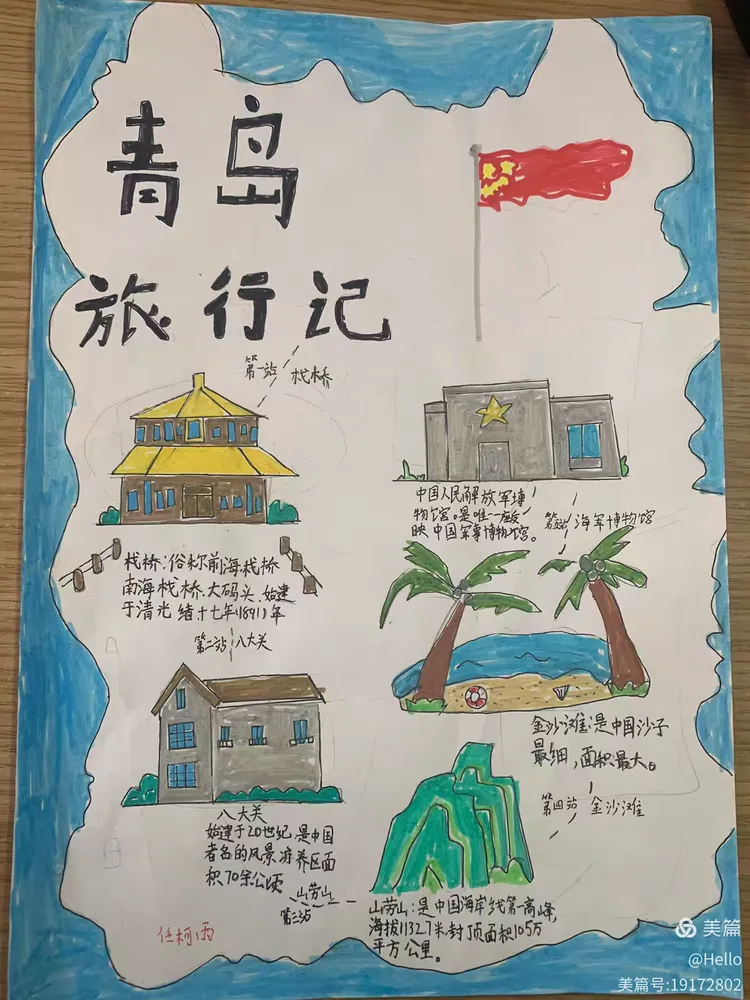 青岛
旅行记
第一站 栈桥
栈桥:俗称前海栈桥
南海栈桥、大码头、始建
于清光绪十七年(1891)年
中国人民解放军博
物馆。是唯一一座反
映中国军事博物馆。
海军博物馆
第二站 八大关
八大关
始建于20世纪,是中国
著名的风景疗养区面
积70余公顷
金沙滩:是中国沙子
最细,面积最大。
第四站 金沙滩
山劳山
第三站
山劳山:是中国海岸线第一高峰,
海拔1132.7米封顶面积105万
平方公里。
任柯雨
美篇
@Hello
美篇号:19172802